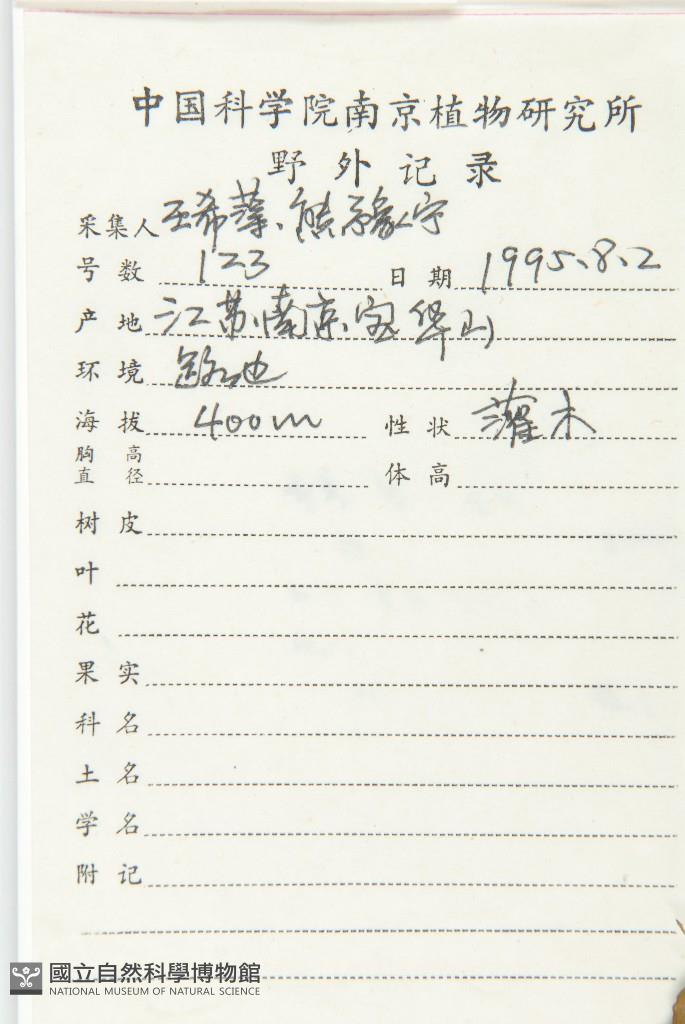 中国科学院南京植物研究所
野外记录
采集人 王希蕖、熊豫宁
号数 123 日期 1995.8.2
产地 江苏、南京、宝华山
环境 路边
海拔 400m 性状 灌木
胸高直径 体高
树皮
叶
花
果实
科名
土名
学名
附记
國立自然科學博物館
NATIONAL MUSEUM OF NATURAL SCIENCE